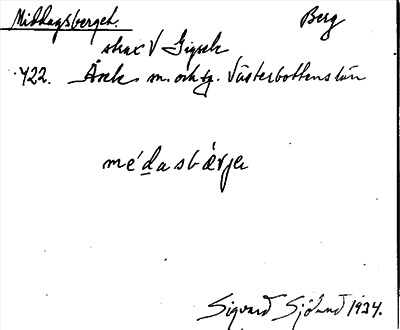 Middagsberget. Berg
strax V Gigsele
422. Åsele sn. och tg. Västerbottens län
médasbærje
Sigvard Sjölund 1934.